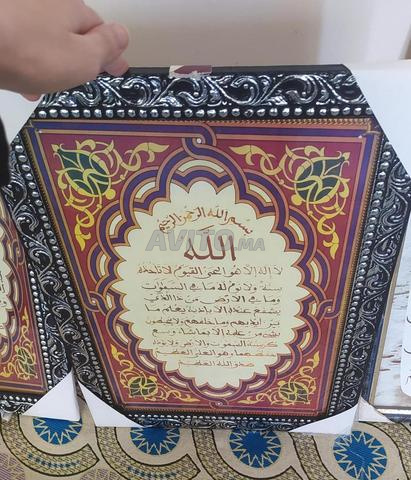 بسم الله الرحمن الرحيم
الله
لا اله إلا هو الحي القيوم لا تاخذه
سنة ولا نوم له ما في السموات
وما في الارض من ذا الذي
يشفع عنده الا باذنه يعلم ما
بين ايديهم وما خلفهم ولا يحيطون
من علمه الا بما شاء وسع
كرسيه السموت والارض ولا يئوده
حفظهما وهو العلي العظيم
صدق الله العظيم
AVITO.MA